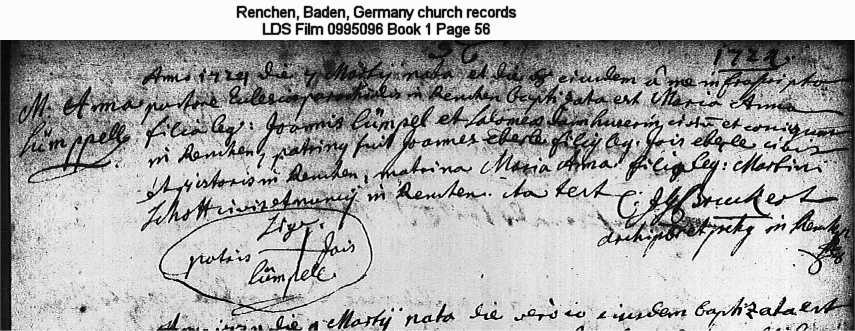 Renchen, Baden, Germany church records
LDS Film 0995096 Book 1 Page 56
56
1724
Anno 1724 die 7 Martij nata et die 8 eiusdem a me infrascripto
M. Anna pastore Ecclesiae parochialis in Renchen baptizata est Maria Anna
lümppelle filia leg: Joannis lümpel et Salomea civium et coniugum
in Renchen, patrinus fuit Joannes Eberle filius leg. Jois eberle civis
et pistoris in Renchen, matrina Maria Anna filia leg: Martini
Schott civis et in Renchen. ita test
in Renchen
patris Jois
lümpele
Martij nata die eiusdem baptizata est